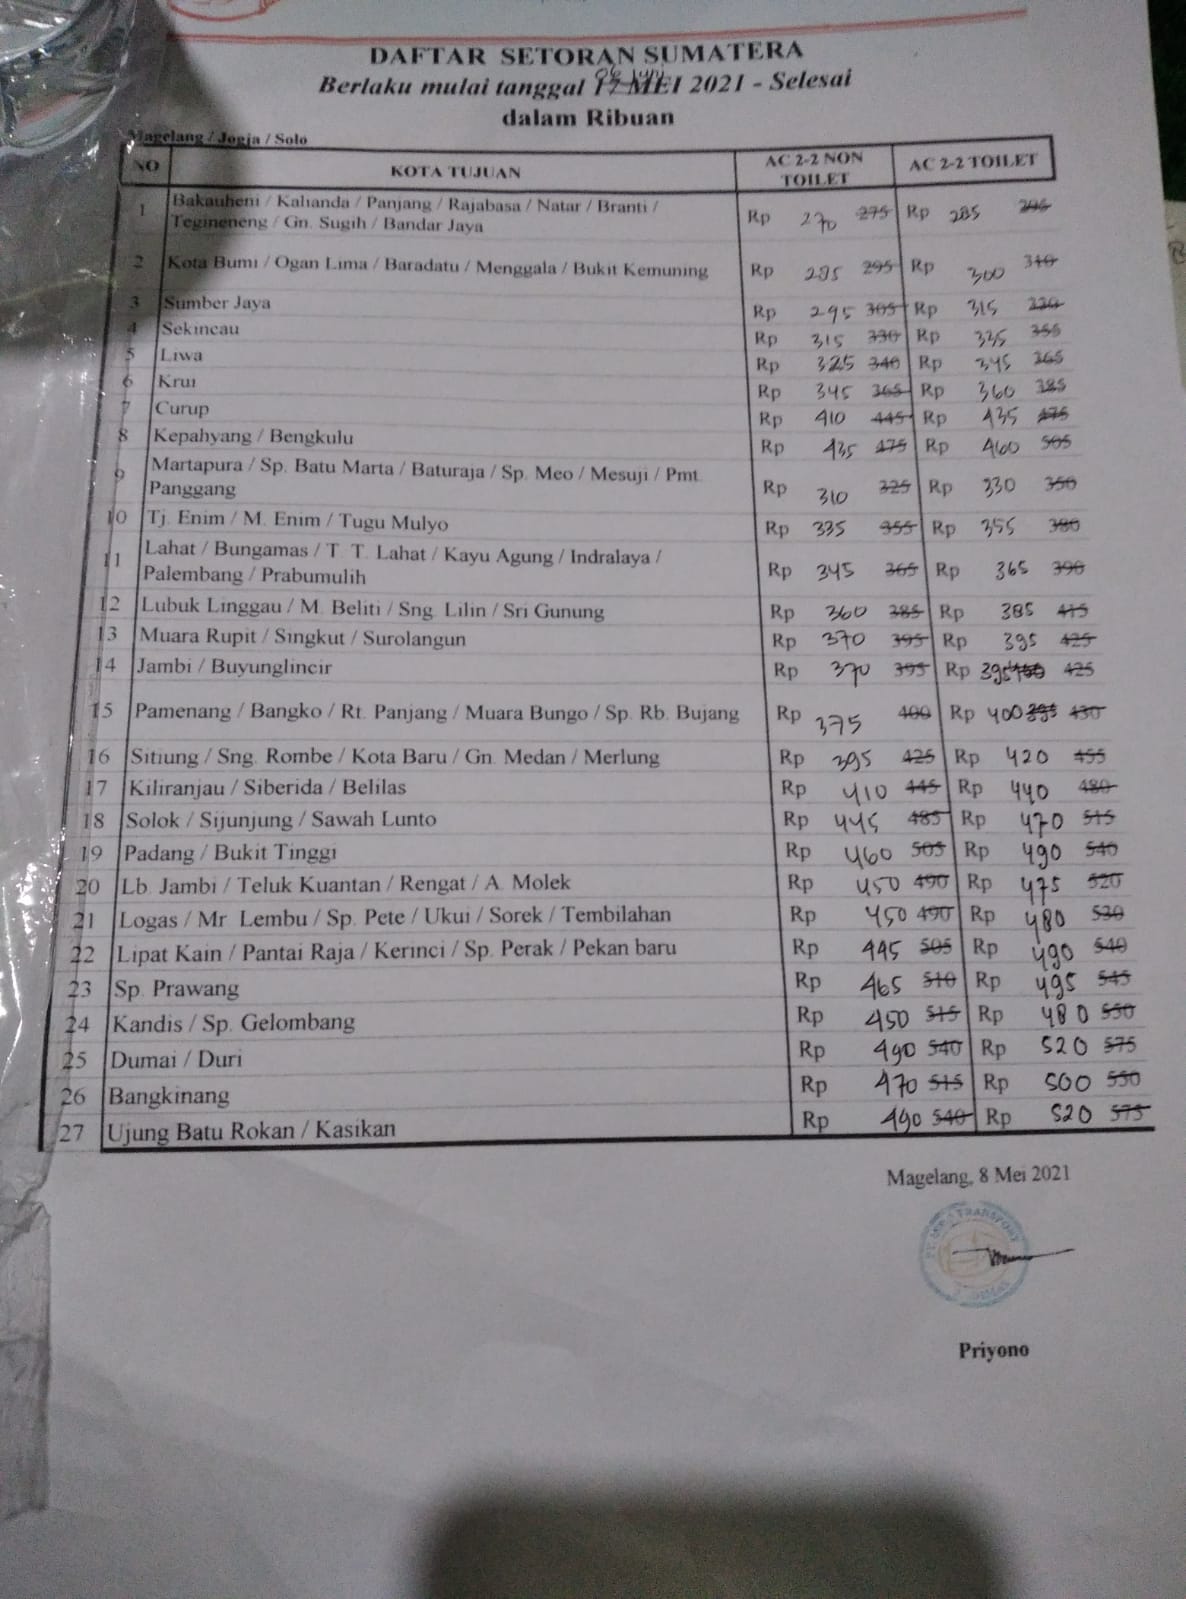 DAFTAR SETORAN SUMATERA
Berlaku mulai tanggal 17 MEI 2021 - Selesai
dalam Ribuan
Magelang / Jogja / Solo
NO KOTA TUJUAN AC 2-2 NON TOILET AC 2-2 TOILET
1 Bakauheni / Kalianda / Panjang / Rajabasa / Natar / Branti /
Tegineneng / Gn. Sugih / Bandar Jaya Rp 270 275 Rp 285 295
2 Kota Bumi / Ogan Lima / Baradatu / Menggala / Bukit Kemuning Rp 285 295 Rp 300 310
3 Sumber Jaya Rp 295 305 Rp 315 330
4 Sekincau Rp 315 330 Rp 335 355
5 Liwa Rp 325 340 Rp 345 365
6 Krui Rp 345 365 Rp 360 385
7 Curup Rp 410 445 Rp 435 475
8 Kepahyang / Bengkulu Rp 435 475 Rp 460 505
9 Martapura / Sp. Batu Marta / Baturaja / Sp. Meo / Mesuji / Pmt.
Panggang Rp 310 325 Rp 330 350
10 Tj. Enim / M. Enim / Tugu Mulyo Rp 335 355 Rp 355 380
11 Lahat / Bungamas / T. T. Lahat / Kayu Agung / Indralaya /
Palembang / Prabumulih Rp 345 365 Rp 365 390
12 Lubuk Linggau / M. Beliti / Sng. Lilin / Sri Gunung Rp 360 385 Rp 385 415
13 Muara Rupit / Singkut / Surolangun Rp 370 395 Rp 395 425
14 Jambi / Buyunglincir Rp 370 395 Rp 395 425
15 Pamenang / Bangko / Rt. Panjang / Muara Bungo / Sp. Rb. Bujang Rp 375 400 Rp 400 395 430
16 Sitiung / Sng. Rombe / Kota Baru / Gn. Medan / Merlung Rp 395 425 Rp 420 455
17 Kiliranjau / Siberida / Belilas Rp 410 445 Rp 440 480
18 Solok / Sijunjung / Sawah Lunto Rp 445 485 Rp 470 515
19 Padang / Bukit Tinggi Rp 460 505 Rp 490 540
20 Lb. Jambi / Teluk Kuantan / Rengat / A. Molek Rp 450 490 Rp 475 520
21 Logas / Mr. Lembu / Sp. Pete / Ukui / Sorek / Tembilahan Rp 450 490 Rp 480 530
22 Lipat Kain / Pantai Raja / Kerinci / Sp. Perak / Pekan baru Rp 445 505 Rp 490 540
23 Sp. Prawang Rp 465 510 Rp 495 545
24 Kandis / Sp. Gelombang Rp 450 515 Rp 480 550
25 Dumai / Duri Rp 490 540 Rp 520 575
26 Bangkinang Rp 470 515 Rp 500 550
27 Ujung Batu Rokan / Kasikan Rp 490 540 Rp 520 575
Magelang, 8 Mei 2021
TRANSPORT
Priyono